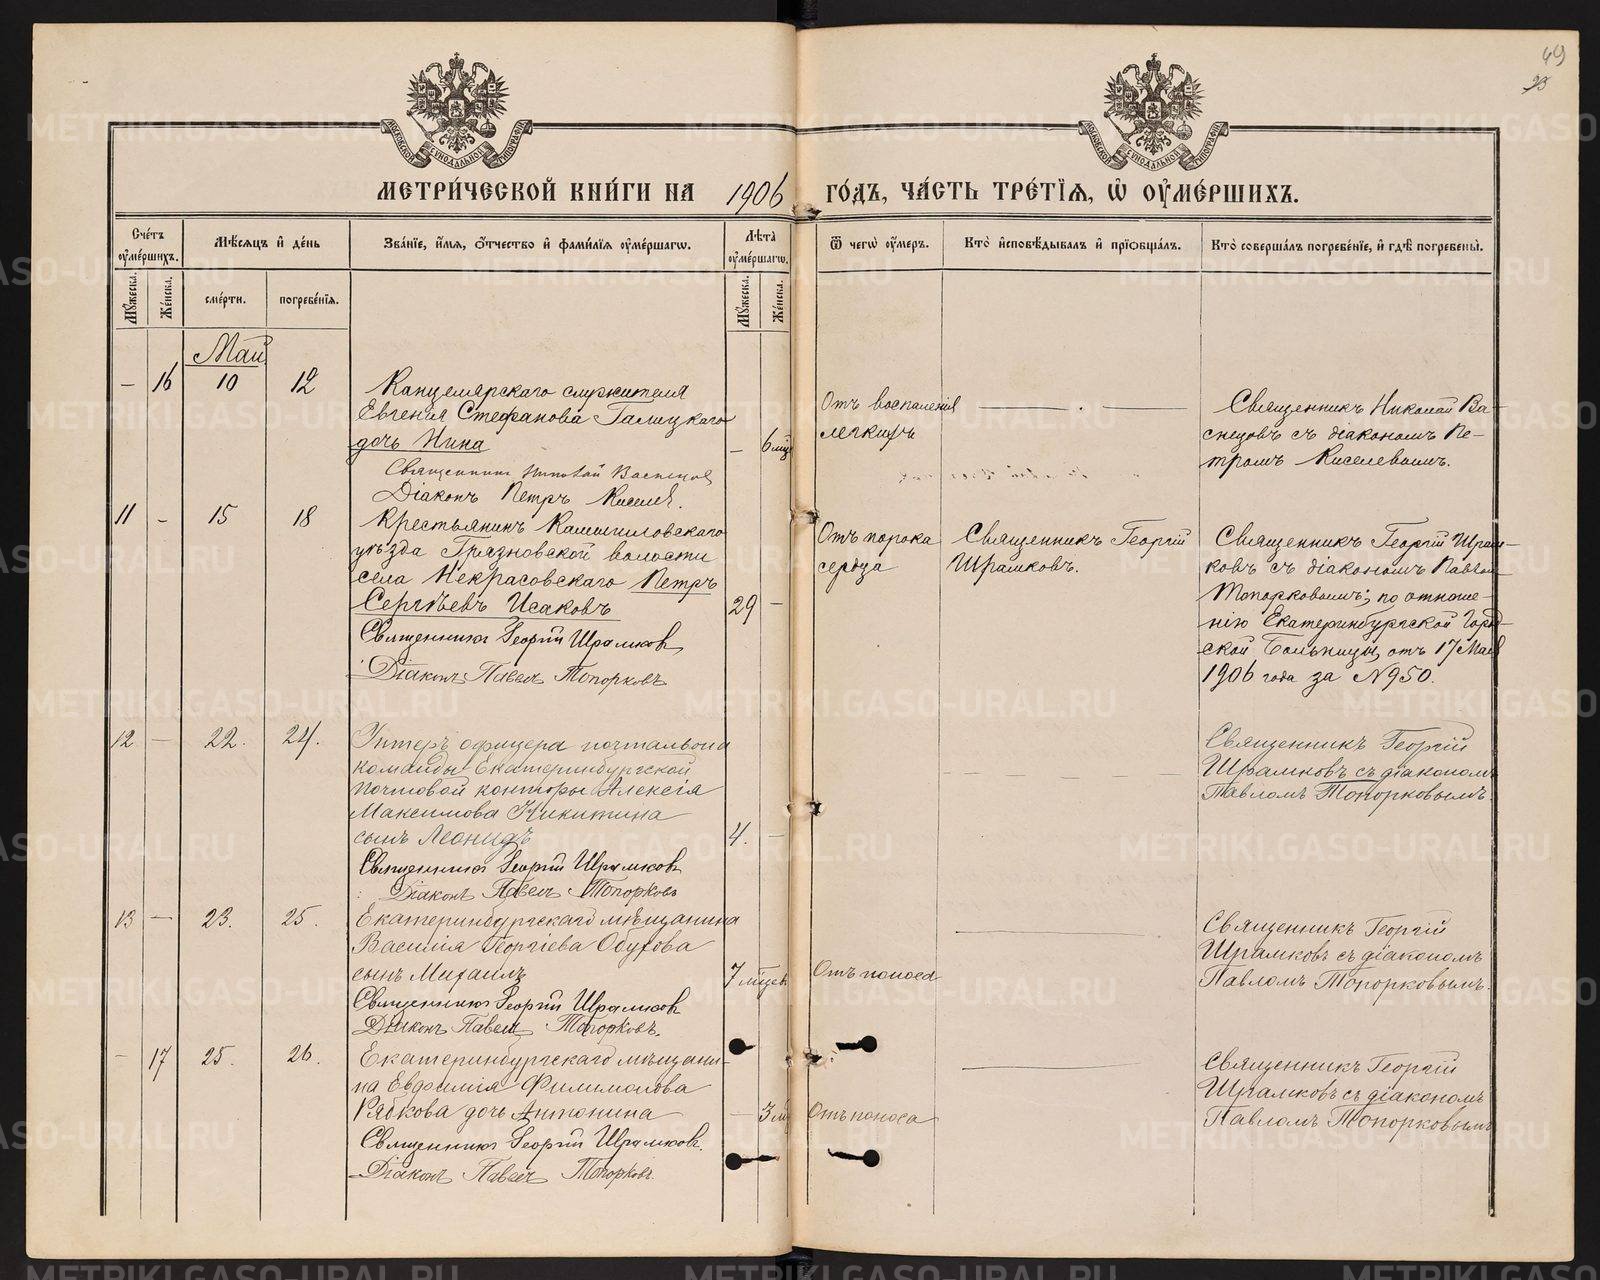 49
23
МОСКОВСКОЙ СѴНОДАЛЬНОЙ ТИПОГРАФІИ
МОСКОВСКОЙ СѴНОДАЛЬНОЙ ТИПОГРАФІИ
МЕТРИ́ЧЕСКОЙ КНИ́ГИ НА 1906 ГО́ДЪ, ЧА́СТЬ ТРЕ́ТІѦ, Ѽ ОУМЕ́РШИХЪ.
Сче́тъ оуме́ршихъ.
Мѣ́сяцъ и де́нь
Зва́нїе, и́мѧ, о́тчество и фами́лїѧ оуме́ршагѡ.
Лѣ́та оуме́ршагѡ.
Ѿ чегѡ̀ оу́меръ.
Кто̀ и҆сповѣ́дывалъ и҆ прїѡбща́лъ.
Кто̀ соверша́лъ погребе́нїе, и҆ гдѣ̀ погребены̀.
Мꙋ́жеска.
Же́нска.
сме́рти.
погребе́нїѧ.
Мꙋ́жеска.
Же́нска.
Май
— 16 10 12
Канцелярскаго служителя
Евгенія Стефанова Галицкаго
дочь Нина
— 6 мѣс
Священникъ Николай Васнецов
Діаконъ Петръ Киселев.
Отъ воспаленія
легкихъ
Священникъ Николай Ва-
снецовъ съ діакономъ Пе-
тромъ Киселевымъ.
11 - 15 18
Крестьянинъ Камышловскаго
уѣзда Грязновской волости
села Некрасовскаго Петръ
Сергѣевъ Исаковъ
29 —
Священникъ Георгій Шрамков
Діаконъ Павелъ Топорковъ
Отъ порока
сердца
Священникъ Георгій
Шрамковъ.
Священникъ Георгій Шрам-
ковъ съ діакономъ Павлом
Топорковымъ; по отноше-
нію Екатеринбургской Город-
ской Больницы, отъ 17 Мая
1906 года за №950.
12 — 22. 24.
Унтеръ офицера почтальона
команды Екатеринбургской
почтовой конторы Алексія
Максимова Никитина
сынъ Леонидъ
4. —
Священникъ Георгій Шрамков
Діаконъ Павелъ Топорковъ
Священникъ Георгій
Шрамковъ съ діакономъ
Павломъ Топорковымъ.
13 — 23. 25.
Екатеринбургскаго мѣщанина
Василія Георгіева Обухова
сынъ Михаилъ
7 мѣсец
Священникъ Георгій Шрамков
Діаконъ Павелъ Топорковъ.
Отъ поноса
Священникъ Георгій
Шрамковъ съ діакономъ
Павломъ Топорковымъ.
— 17 25. 26.
Екатеринбургскаго мѣщани-
на Евфимія Филимонова
Рябкова дочь Антонина
— 3 м
Священникъ Георгій Шрамков.
Діаконъ Павелъ Топорковъ.
Отъ поноса
Священникъ Георгій
Шрамковъ съ діакономъ
Павломъ Топорковымъ
METRIKI.GASO-URAL.RU